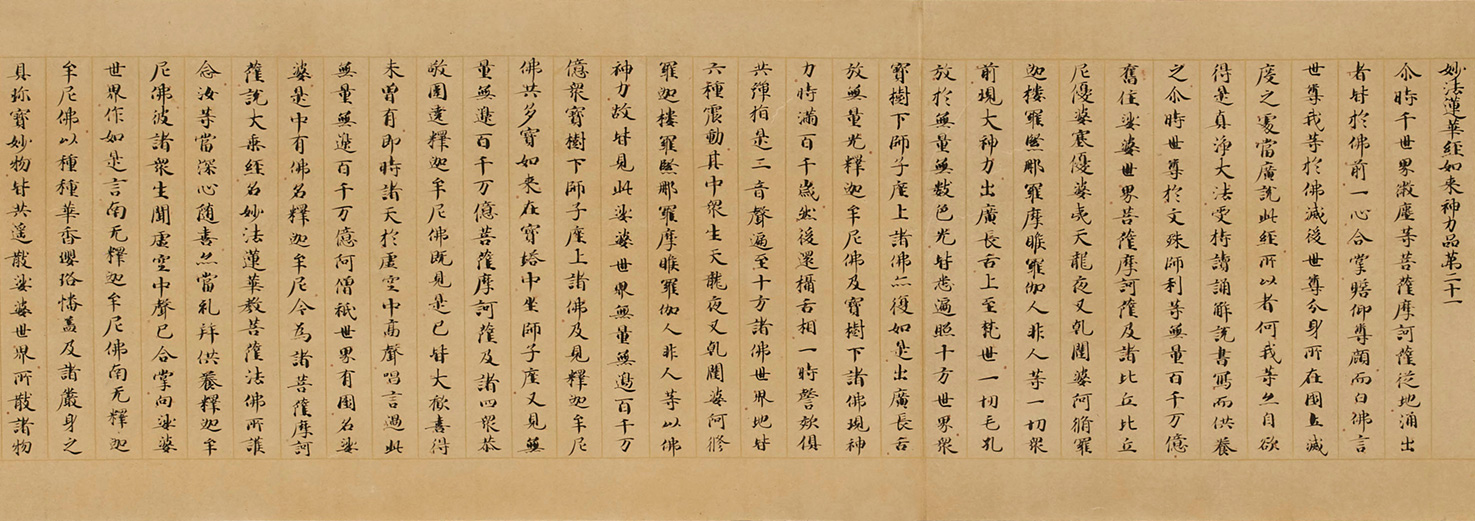 妙法蓮華經如來神力品第二十一
尒時千世界微塵等菩薩摩訶薩從地涌出
者皆於佛前一心合掌瞻仰尊顔而白佛言
世尊我等於佛滅後世尊分身所在國土滅
度之處當廣說此經所以者何我等亦自欲
得是真淨大法受持讀誦解說書寫而供養
之尒時世尊於文殊師利等無量百千万億
舊住娑婆世界菩薩摩訶薩及諸比丘比丘
尼優婆塞優婆夷天龍夜叉乹闥婆阿脩羅
迦樓羅緊那羅摩睺羅伽人非人等一切衆
前現大神力出廣長舌上至梵世一切毛孔
放於無量無數色光皆悉遍照十方世界衆
寶樹下師子座上諸佛亦復如是出廣長舌
放無量光釋迦牟尼佛及寶樹下諸佛現神
力時滿百千歲然後還攝舌相一時謦欬俱
共彈指是二音聲遍至十方諸佛世界地皆
六種震動其中衆生天龍夜叉乹闥婆阿脩
羅迦樓羅緊那羅摩睺羅伽人非人等以佛
神力故皆見此娑婆世界無量無邊百千万
億衆寶樹下師子座上諸佛及見釋迦牟尼
佛共多寶如來在寶塔中坐師子座又見無
量無邊百千万億菩薩摩訶薩及諸四衆恭
敬圍遶釋迦牟尼佛既見是已皆大歡喜得
未曾有即時諸天於虛空中高聲唱言過此
無量無邊百千万億阿僧祇世界有國名娑
婆是中有佛名釋迦牟尼今為諸菩薩摩訶
薩說大乘經名妙法蓮華教菩薩法佛所護
念汝等當深心随喜亦當礼拜供養釋迦牟
尼佛彼諸衆生聞虛空中聲已合掌向娑婆
世界作如是言南无釋迦牟尼佛南无釋迦
牟尼佛以種種華香瓔珞幡盖及諸嚴身之
具珎寶妙物皆共遥散娑婆世界所散諸物